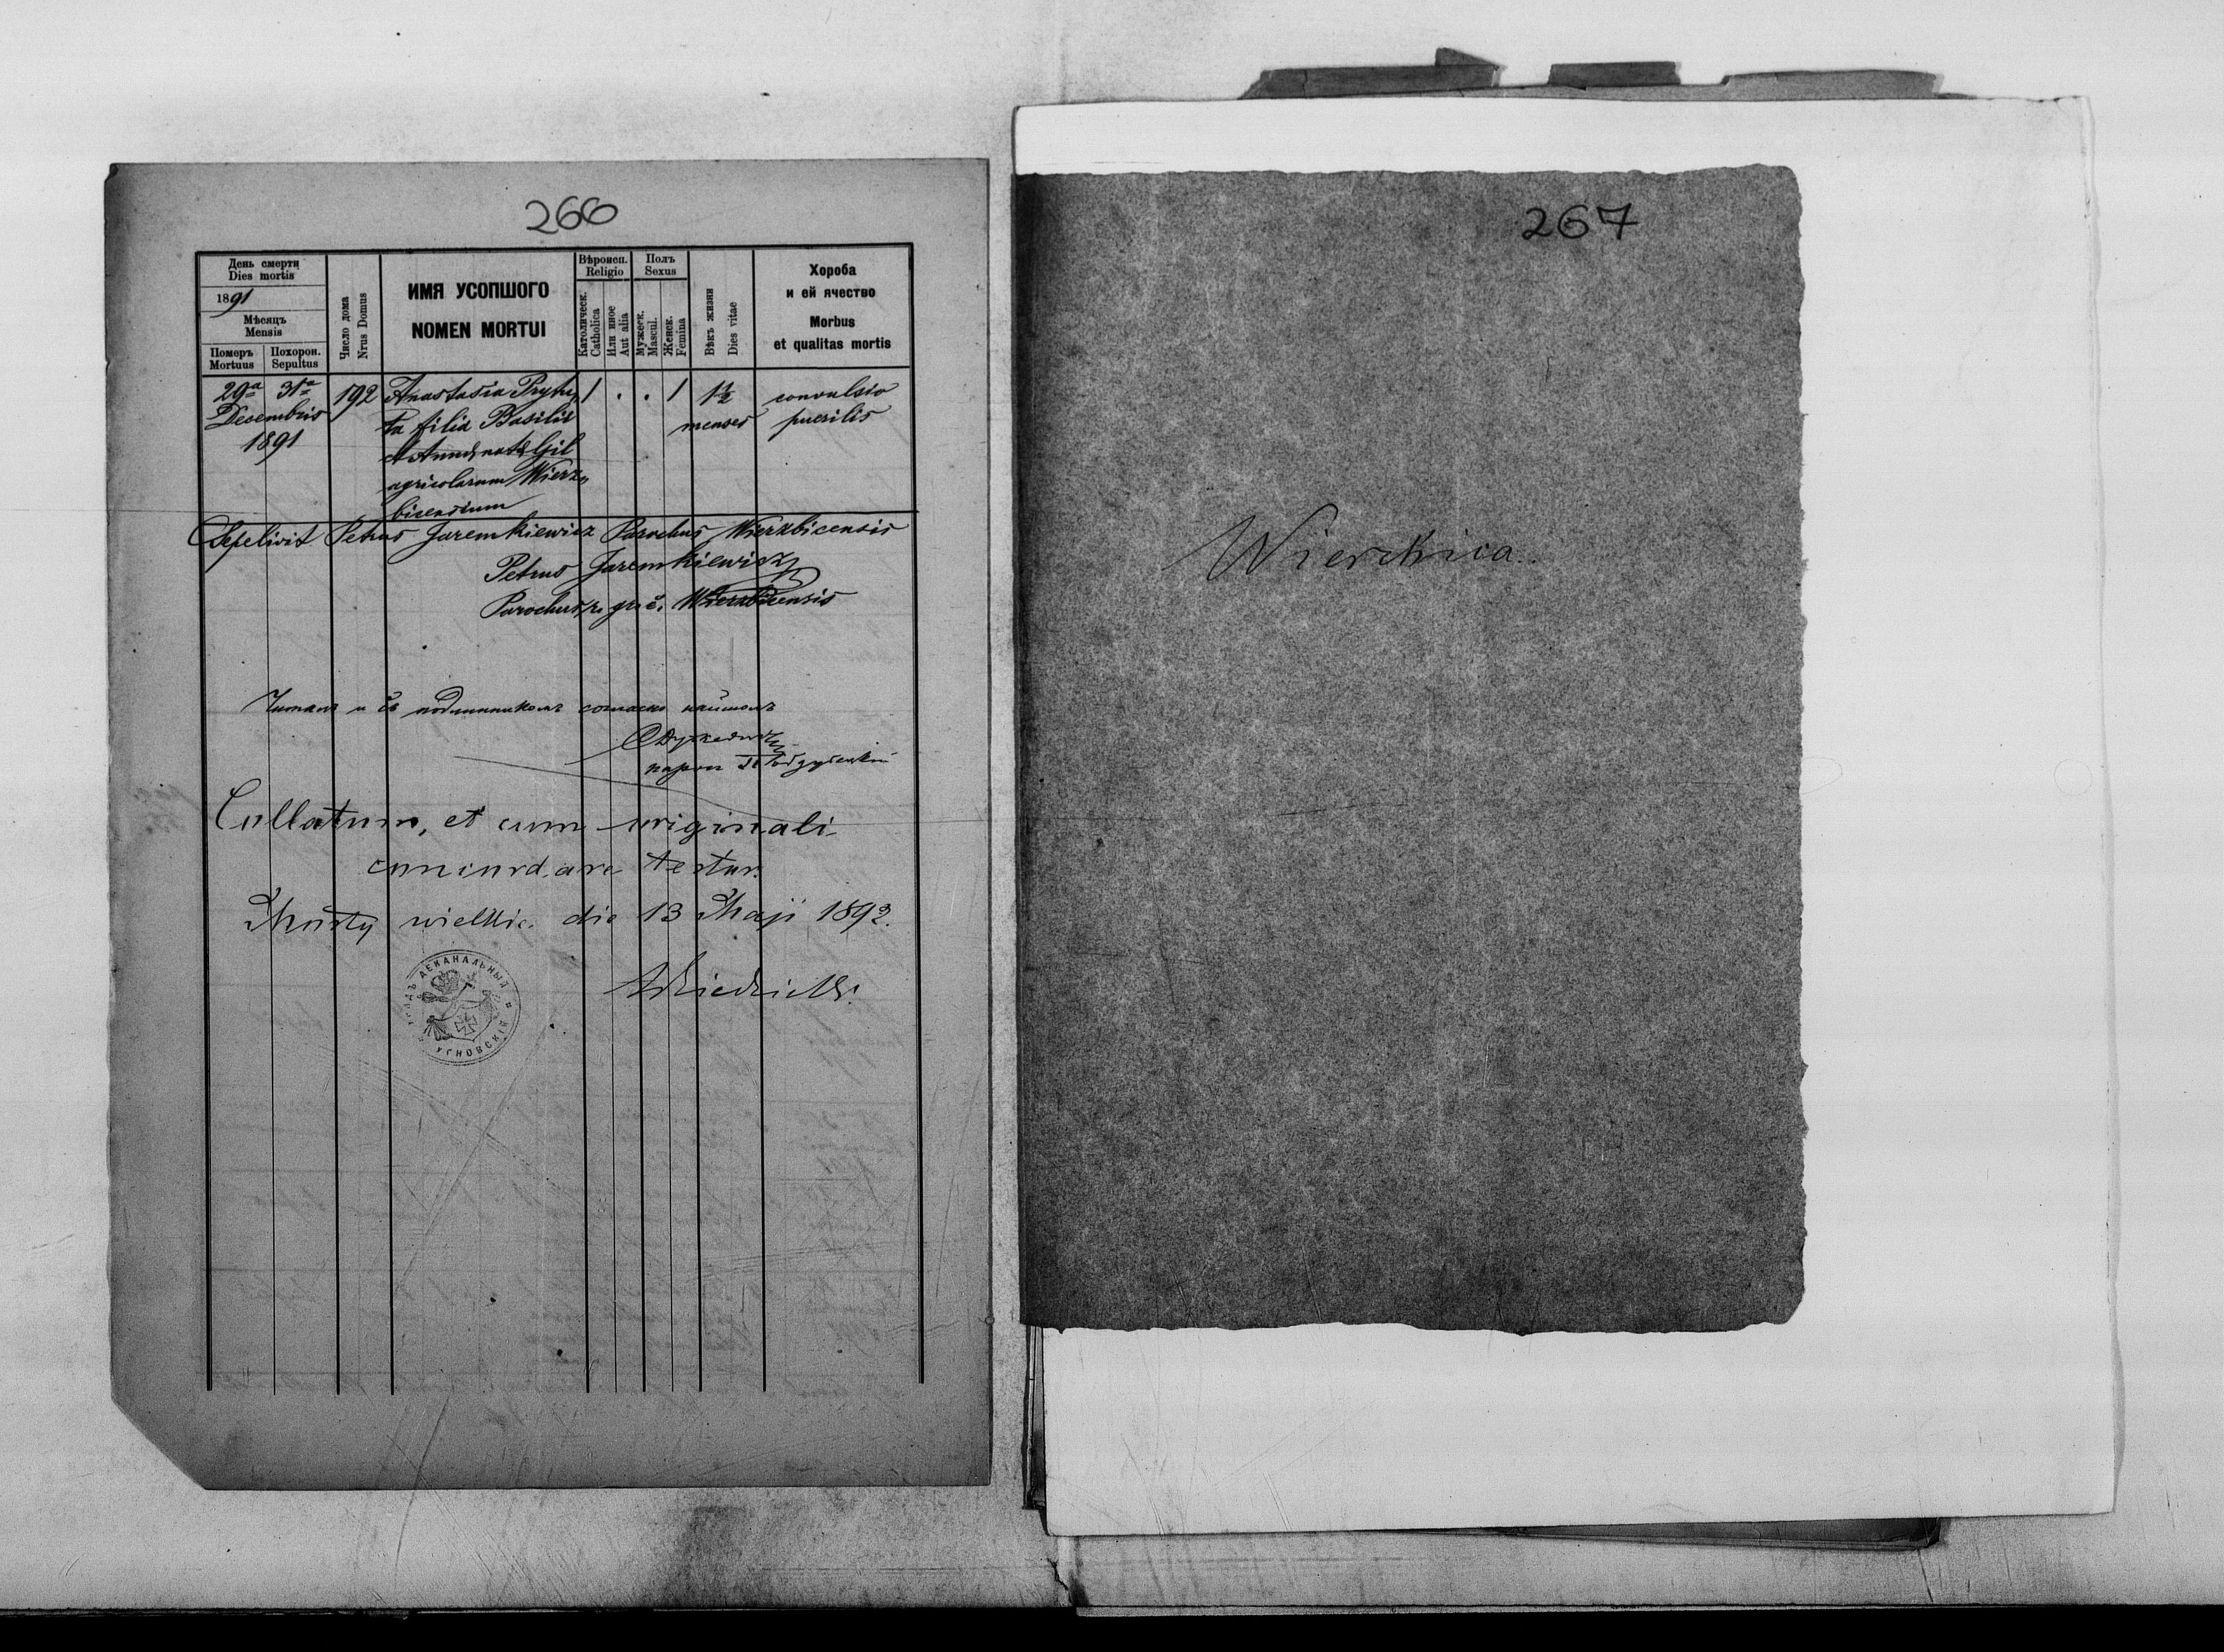 266
День смерти
Dies mortis
1891
Мѣсяцъ
Mensis
Померъ Похорон.
Mortuus Sepultus
Число дома
Nrus Domus
ИМЯ УСОПШОГО
NOMEN MORTUI
Вѣроисп.
Religio
Католическ.
Catholica
Или иное
Aut alia
Полъ
Sexus
Мужеск.
Mascul.
Женск.
Femina
Вѣкъ жизни
Dies vitae
Хороба
и ей ячество
Morbus
et qualitas mortis
29a 31a 192 Anastasia Pryty, 1 . . 1 1½ convulsio
Decembris ta filia Basilii menses puerilis
1891 et Annae natae Gil
agricolarum Wierz,,
bicensium
Sepelivit Petrus Jaremkiewicz Parochus Wierzbicensis
Petrus Jaremkiewicz
Parochus r. gr. c. Wierzbicensis
Читалъ и съ подлинникомъ согласно
Collatum, et cum originali
concordare testor.
Mosty wielkie die 13 Maji 1892.
ДЕКАНАЛЬНЫЙ
УГНОВСКІЙ
267
Wierzbica.